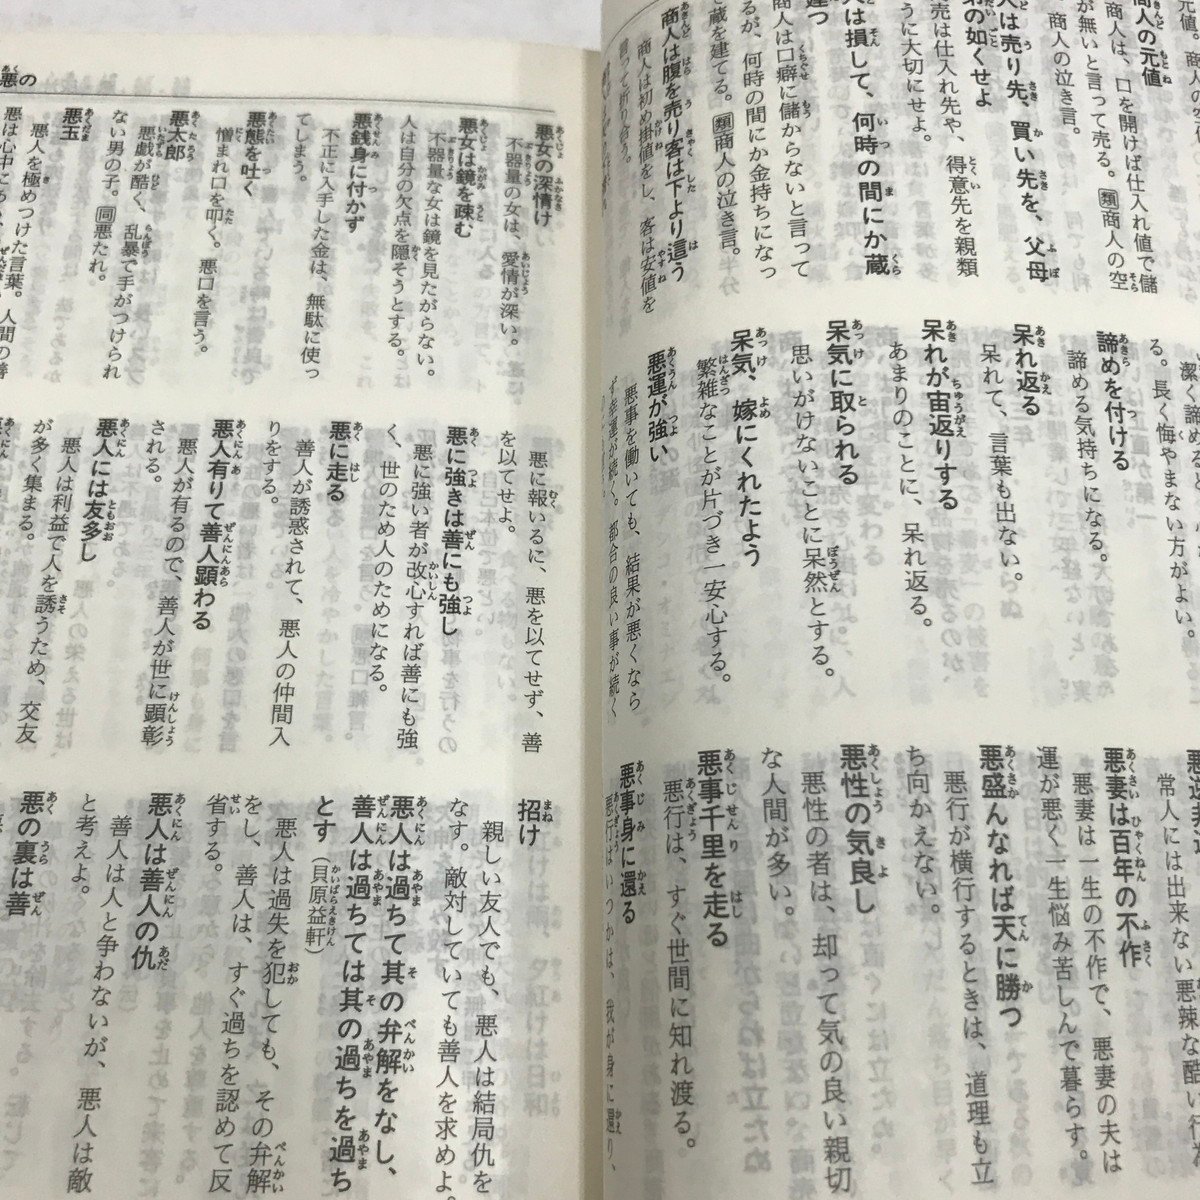 商人の元値
商人は、口を開けば仕入れ値で儲
が無いと言って売る。類商人の空
商人の泣き言。
人は売り先、買い先を、父母
の如くせよ
売は仕入れ先や、得意先を親類
うに大切にせよ。
人は損して、何時の間にか蔵
建つ
商人は口癖に儲からないと言って
るが、何時の間にか金持ちになっ
蔵を建てる。類商人の泣き言。
商人は腹を売り客は下より這う
商人は初め掛値をし、客は安値を
言って折り合う。
潔く諦めると
る。長く悔やまない方がよい。
諦めを付ける
諦める気持ちになる。
呆れ返る
呆れて、言葉も出ない。
呆れが宙返りする
あまりのことに、呆れ返る。
呆気に取られる
思いがけないことに呆然とする。
呆気、嫁にくれたよう
繁雑なことが片づき一安心する。
悪運が強い
悪事を働いても、結果が悪くなら
ず幸運が続く。都合の良い事が続く
常人には出来ない悪辣な酷い行為
悪妻は百年の不作
悪妻は一生の不作で、悪妻の夫は
運が悪く一生悩み苦しんで暮らす。
悪盛んなれば天に勝つ
悪行が横行するときは、道理も立
ち向かえない。
悪性の気良し
悪性の者は、却って気の良い親切
な人間が多い。
悪事千里を走る
悪行は、すぐ世間に知れ渡る。
悪事身に還る
悪行はいつかは、我が身に還り、
悪の
悪女の深情け
不器量の女は、愛情が深い。
悪女は鏡を疎む
不器量な女は鏡を見たがらない。
人は自分の欠点を隠そうとする。
悪銭身に付かず
不正に入手した金は、無駄に使っ
てしまう。
悪態を吐く
憎まれ口を叩く。悪口を言う。
悪太郎
悪戯が酷く、乱暴で手がつけられ
ない男の子。同悪たれ。
悪玉
悪人を極めつけた言葉。人間の善
悪に報いるに、悪を以てせず、善
を以てせよ。
悪に強きは善にも強し
悪に強い者が改心すれば善にも強
く、世のため人のためになる。
悪に走る
善人が誘惑されて、悪人の仲間入
りをする。
悪人有りて善人顕わる
悪人が有るので、善人が世に顕彰
される。
悪人には友多し
悪人は利益で人を誘うため、交友
が多く集まる。
招け
親しい友人でも、悪人は結局仇を
なす。敵対していても善人を求めよ。
悪人は過ちて其の弁解をなし、
善人は過ちては其の過ちを過ち
とす（貝原益軒）
悪人は過失を犯しても、その弁解
をし、善人は、すぐ過ちを認めて反
省する。
悪人は善人の仇
善人は人と争わないが、悪人は敵
と考えよ。
悪の裏は善